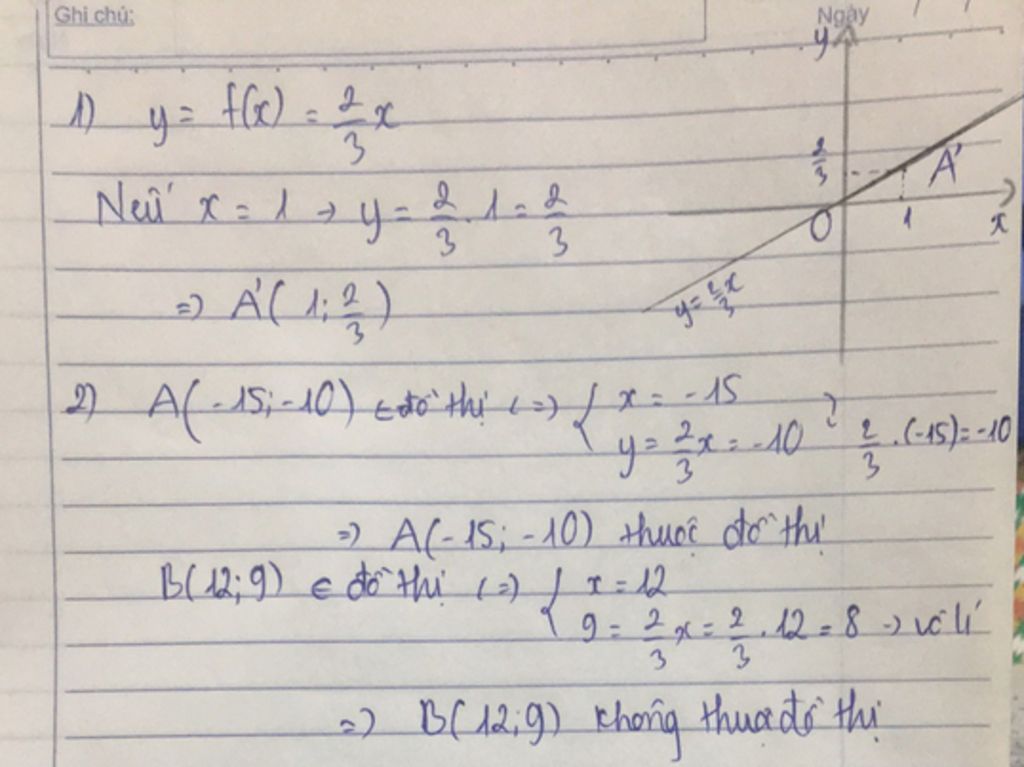 Ghi chú:
Ngày
1) y = f(x) = 2/3 x
Nếu x = 1 → y = 2/3 . 1 = 2/3
=> A'(1; 2/3)
y
2/3
A'
O
1
x
y = 2/3 x
2) A(-15; -10) ∈ đồ thị <=> { x = -15
y = 2/3 x = -10 } 2/3 . (-15) = -10
=> A(-15; -10) thuộc đồ thị
B(12; 9) ∈ đồ thị <=> { x = 12
9 = 2/3 x = 2/3 . 12 = 8 → vô lí
=> B(12; 9) không thuộc đồ thị